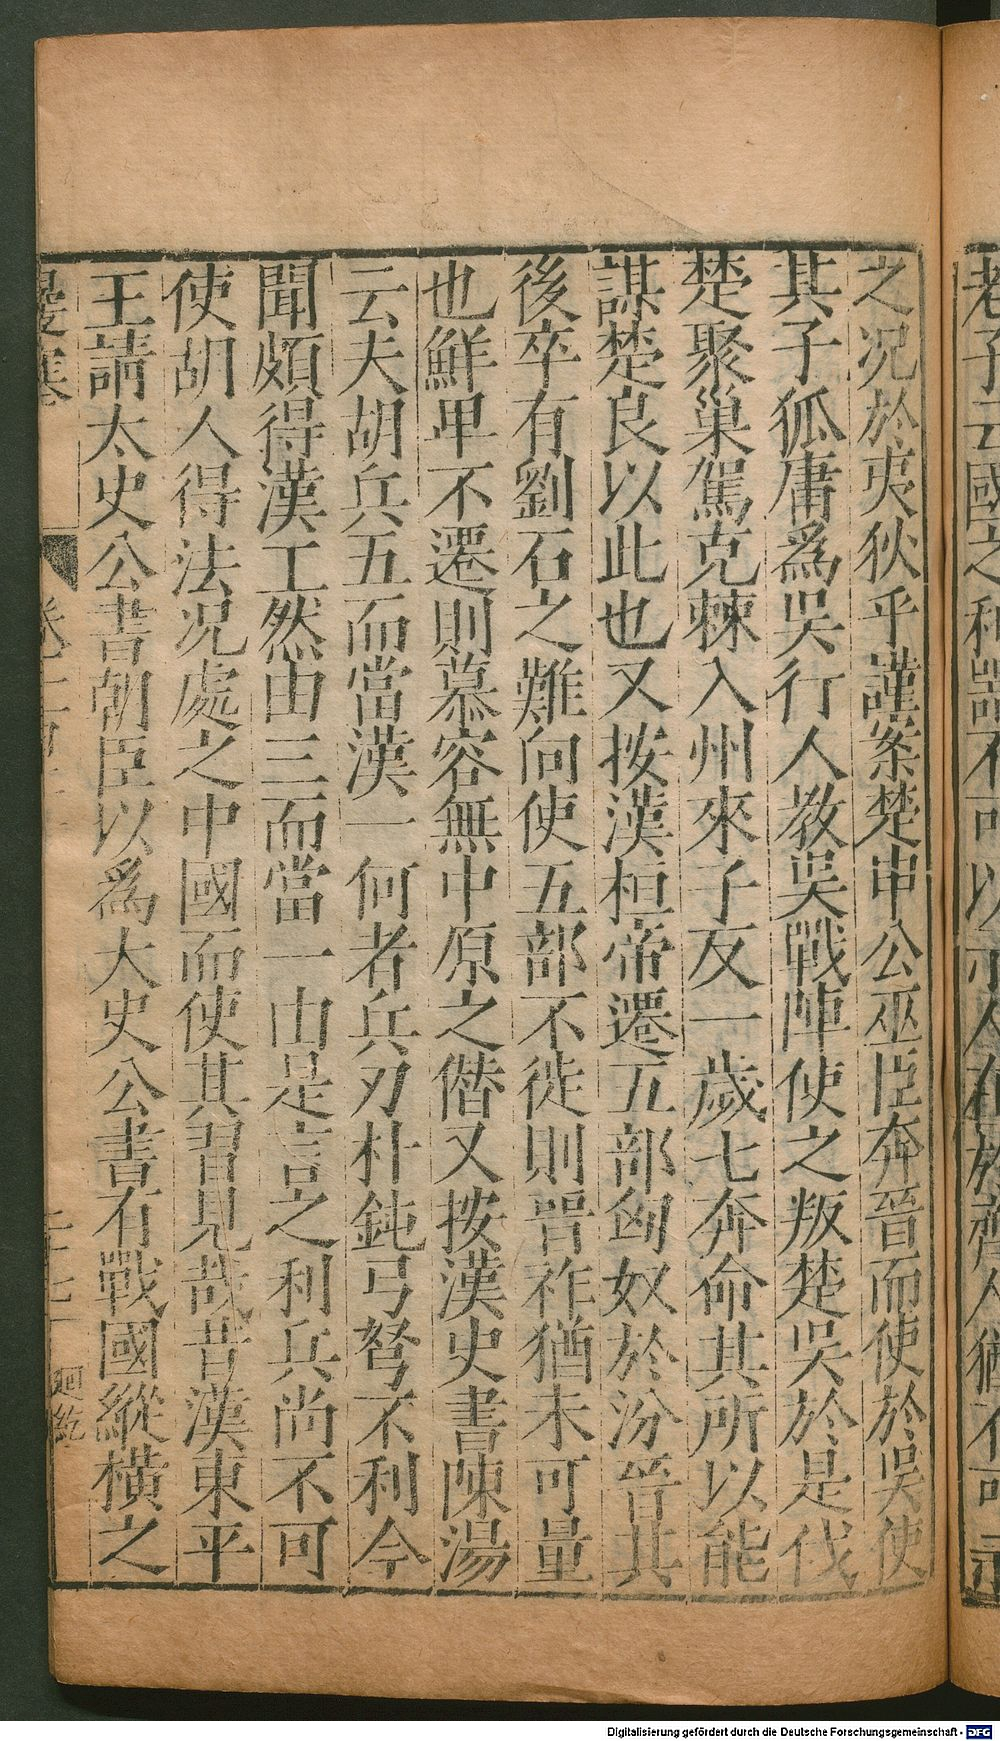 老子云國之利噐不可以示人在於齊人猶不可示
之况於夷狄乎謹案楚申公巫臣奔晉而使於吳使
其子狐庸爲吳行人教吳戰陣使之叛楚吳於是伐
楚聚巢駕克棘入州來子反一歲七奔命其所以能
謀楚良以此也又按漢桓帝遷五部匈奴於汾晉其
後卒有劉石之難向使五部不徙則晉祚猶未可量
也鮮卑不遷則慕容無中原之僭又按漢史書陳湯
云夫胡兵五而當漢一何者兵刃朴鈍弓弩不利今
聞頗得漢工然由三而當一由是言之利兵尚不可
使胡人得法况處之中國而使其習見哉昔漢東平
王請太史公書朝臣以爲大史公書有戰國縱橫之
廻紇
Digitalisierung gefördert durch die Deutsche Forschungsgemeinschaft - DFG